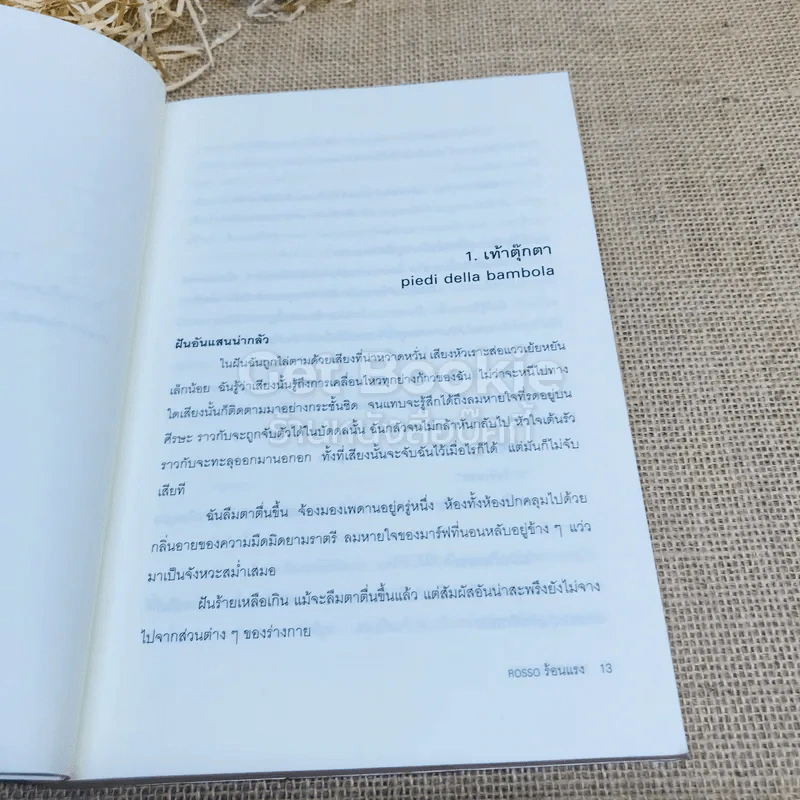 1. เท้าตุ๊กตา
piedi della bambola
ฝันอันแสนน่ากลัว
ในฝันฉันถูกไล่ตามด้วยเสียงที่น่าหวาดหวั่น เสียงหัวเราะส่อแววเย้ยหยัน
เล็กน้อย ฉันรู้ว่าเสียงนั้นรู้ถึงการเคลื่อนไหวทุกย่างก้าวของฉัน ไม่ว่าจะหนีไปทาง
ใดเสียงนั้นก็ติดตามมาอย่างกระชั้นชิด จนแทบจะรู้สึกได้ถึงลมหายใจที่รดอยู่บน
ศีรษะ ราวกับจะถูกจับตัวได้ในบัดดลนั้น ฉันกลัวจนไม่กล้าหันกลับไป หัวใจเต้นรัว
ราวกับจะทะลุออกมานอกอก ทั้งที่เสียงนั้นจะจับฉันไว้เมื่อไรก็ได้ แต่มันก็ไม่จับ
เสียที
ฉันลืมตาตื่นขึ้น จ้องมองเพดานอยู่ครู่หนึ่ง ห้องทั้งห้องปกคลุมไปด้วย
กลิ่นอายของความมืดมิดยามราตรี ลมหายใจของมาร์ฟที่นอนหลับอยู่ข้าง ๆ แว่ว
มาเป็นจังหวะสม่ำเสมอ
ฝันร้ายเหลือเกิน แม้จะลืมตาตื่นขึ้นแล้ว แต่สัมผัสอันน่าสะพรึงยังไม่จาง
ไปจากส่วนต่าง ๆ ของร่างกาย
ROSSO ร้อนแรง 13
Get Bookie
ร้านหนังสือบุ๊กกี้